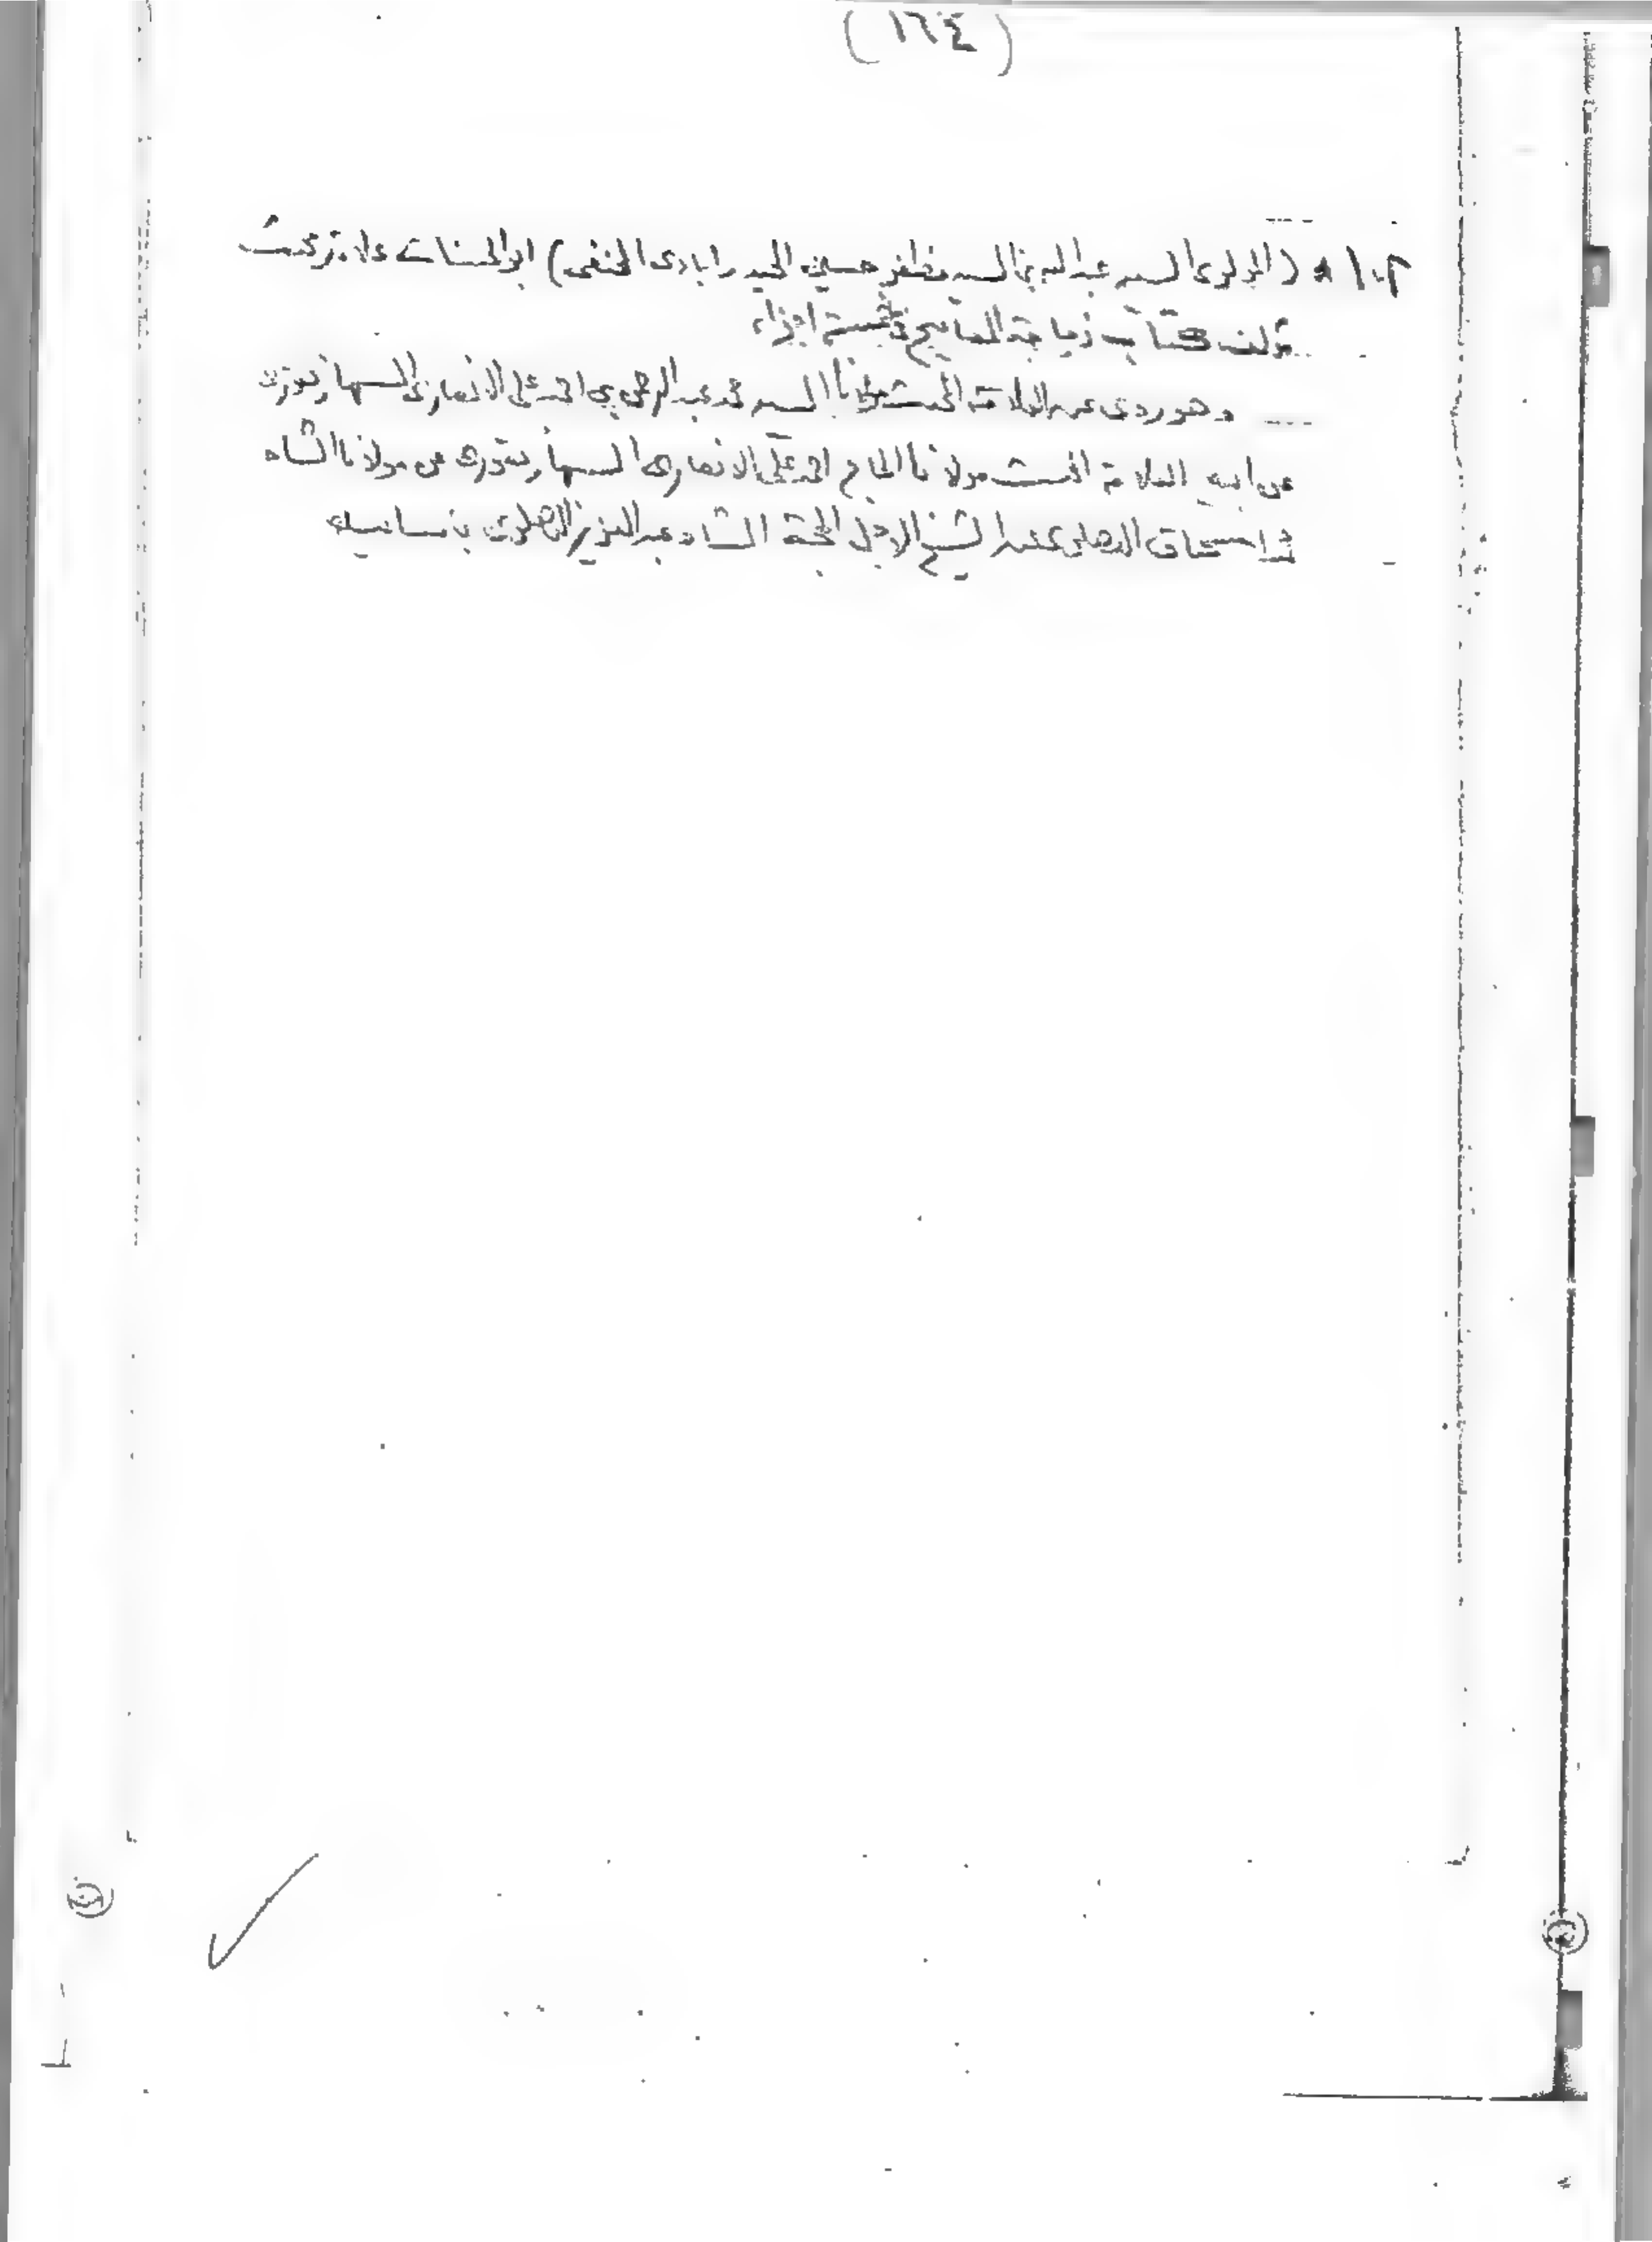 ( ١٦٤ )
( المولوى السيد عبدالله بن السيد مظفر حسين الحيدرابادى الحنفى ) ابوالحسنات علامة محدث
مؤلف كتاب زجاجة المصابيح فى خمسة اجزاء
وهو روى عن العلامة المحدث مولانا السيد محمد عبدالرحمن بن احمد على الانصارى السهارنفورى
عن ابيه العلامة المحدث مولانا الحاج احمد على الانصارى السهارنفورى عن مولانا الشاه
اسحاق الدهلوى عن الشيخ الاجل الحجة الشاه عبد العزيز الدهلوى بأسانيده